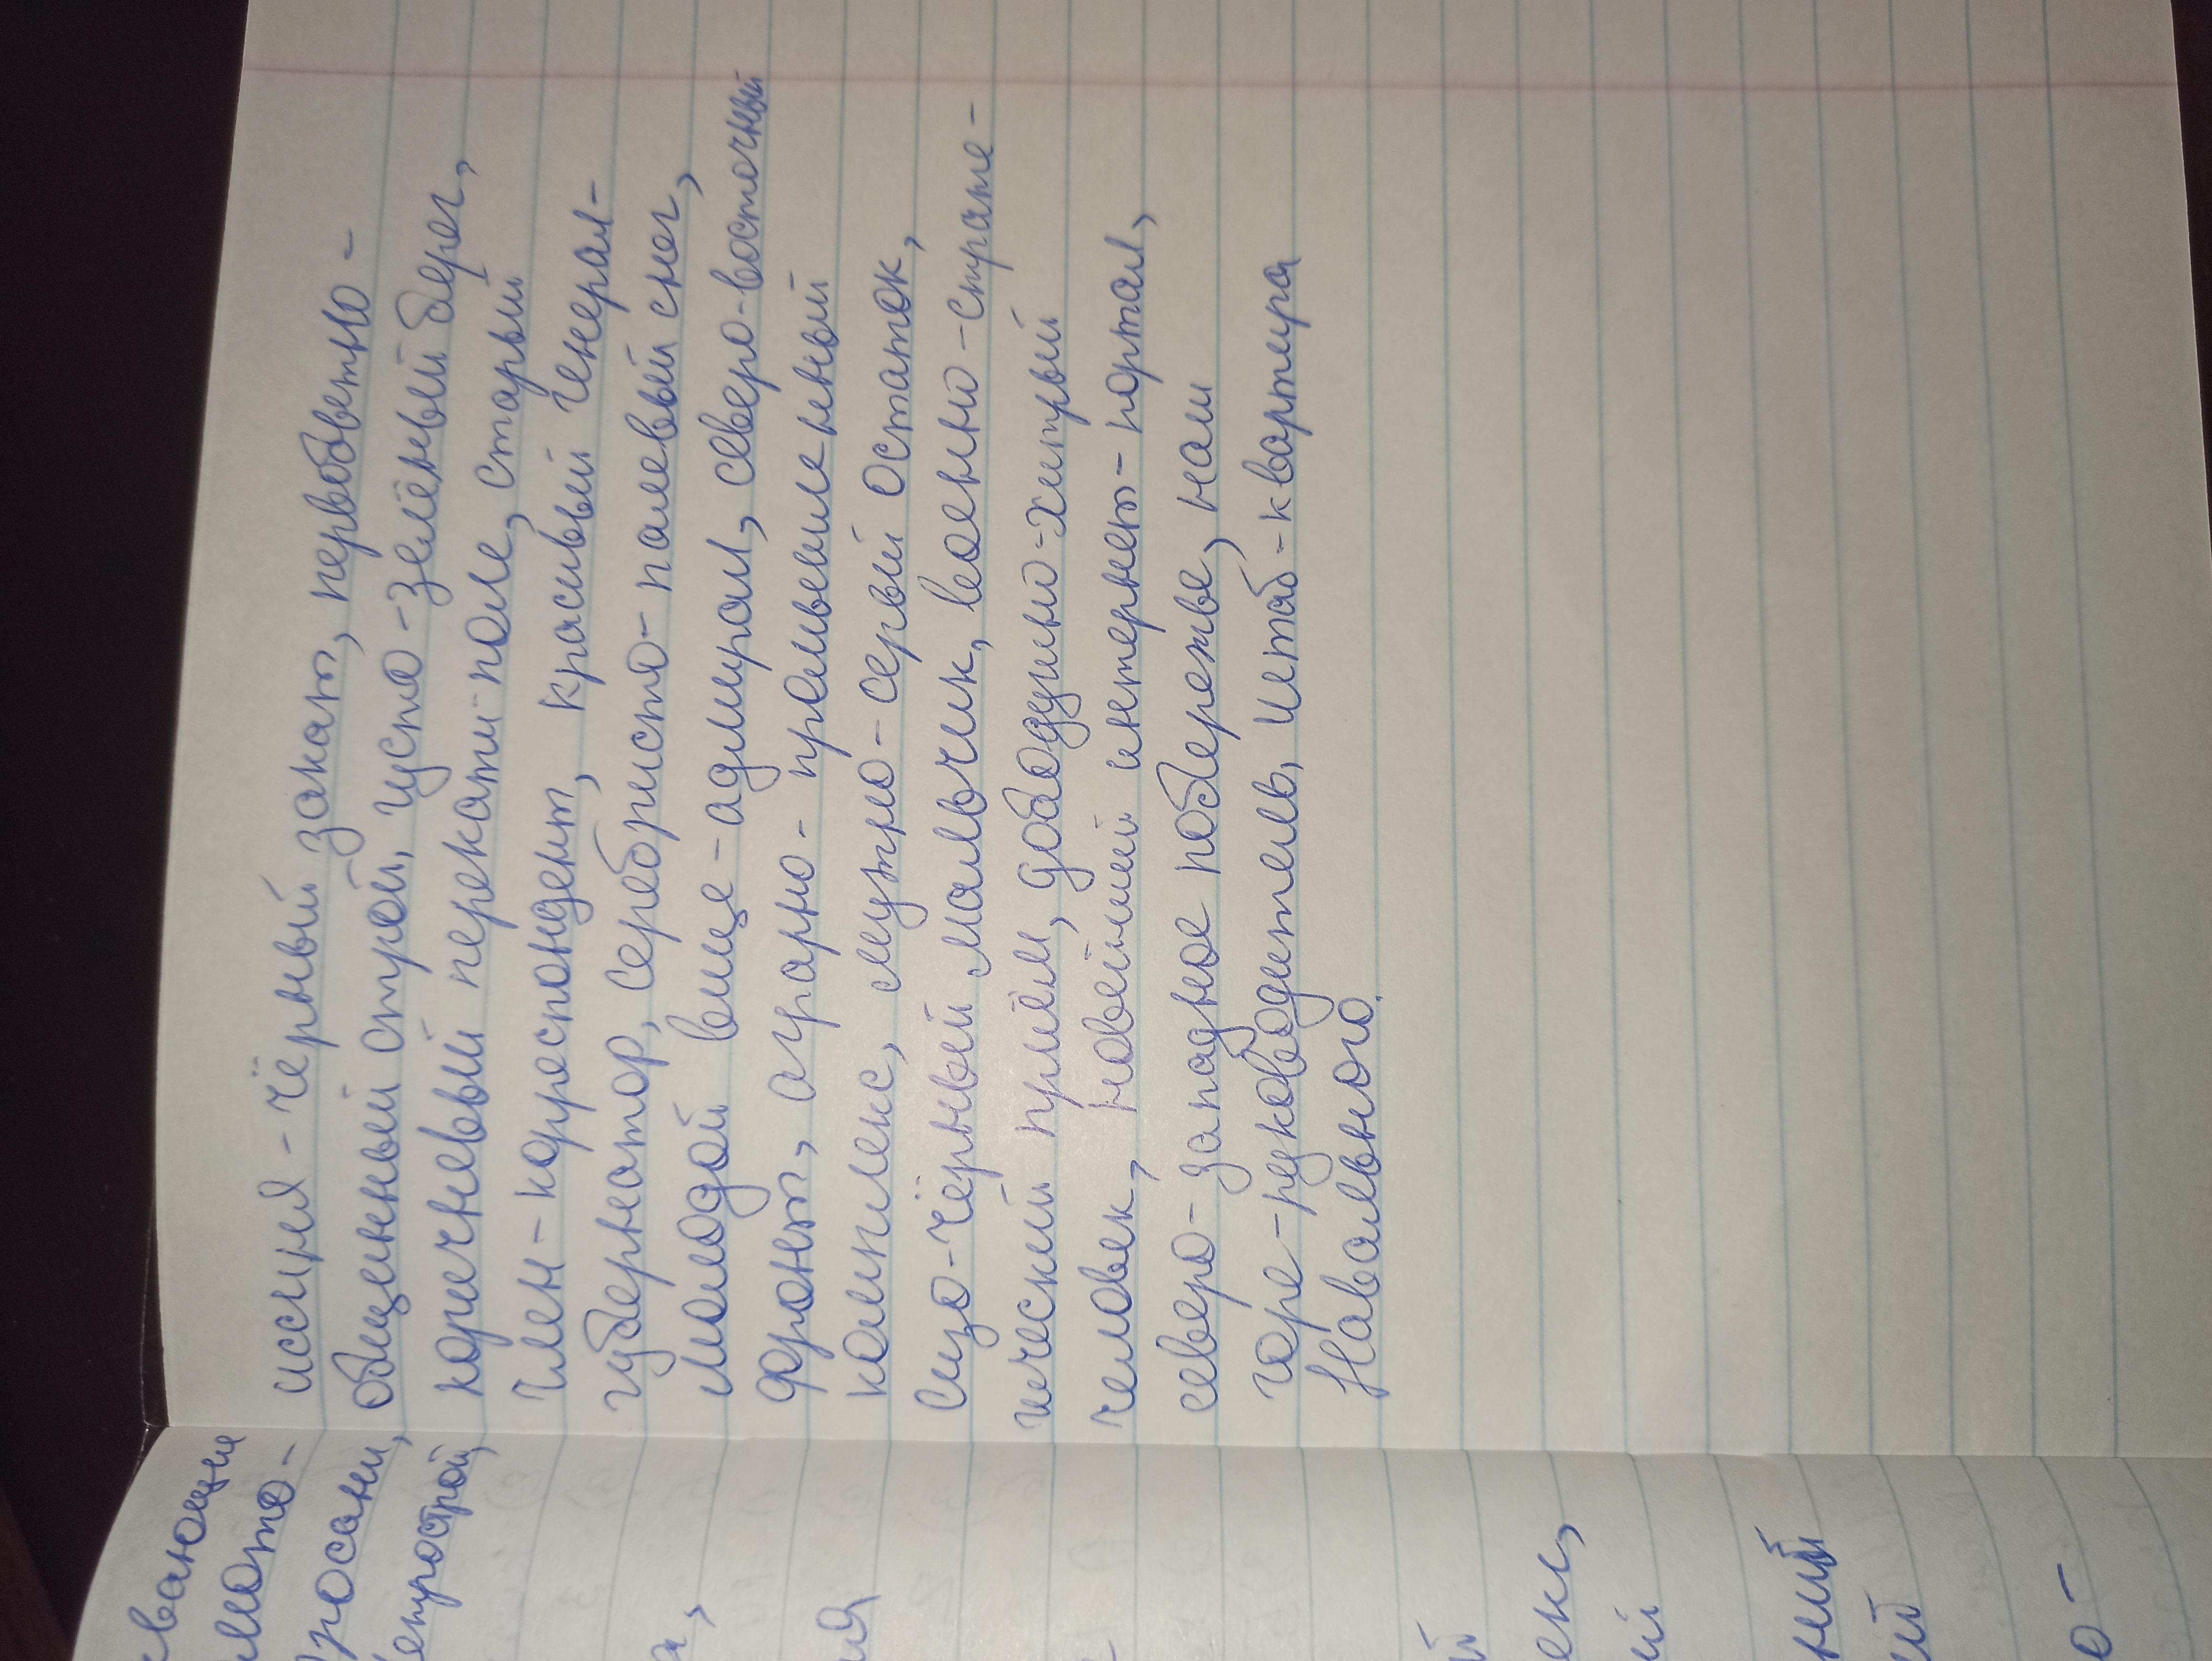 сваюющие
мото-
росани,
епрострой,
иссиня-чёрный закат, первобытно-
общинный строй, густо-зелёный берег,
коричневый перекати-поле, старый
член-корреспондент, красивый генерал-
губернатор, серебристо-палевый снег,
молодой вице-адмирал, северо-восточный
фронт, аграрно-промышленный
комплекс, мутно-серый остаток,
сизо-чёрный мальчик, военно-страте-
гический приём, добродушно-хитрый
человек, новейший интернет-портал,
северо-западное побережье, наш
горе-руководитель, штаб-квартира
Навального.